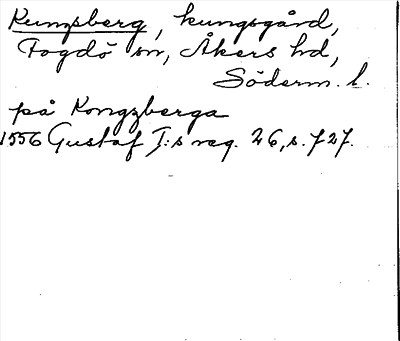 Kungsberg, kungsgård,
Fogdö sn, Åkers hd,
Söderm. l.
på Kongzberga
1556 Gustaf I:s reg. 26, s. 727.